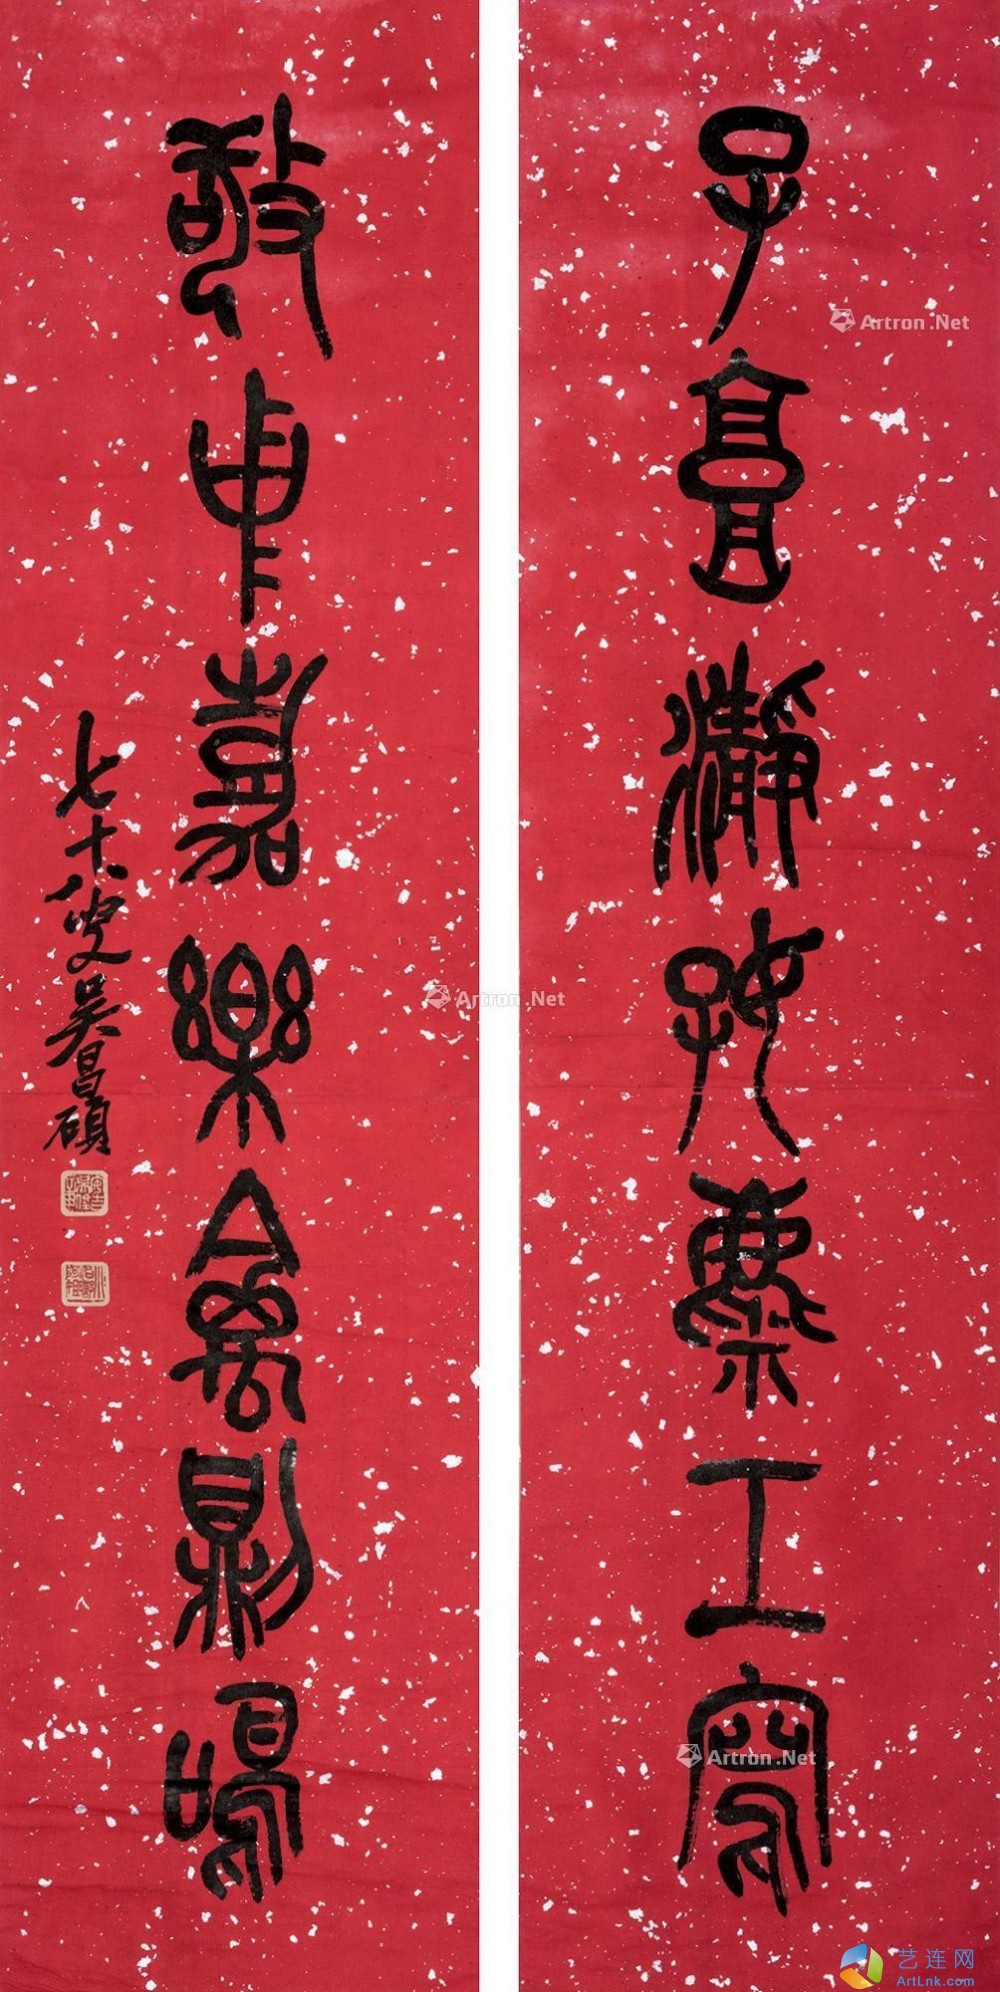 子瀞好栗工寫
敬申嘉樂禽則鳴
七十八叟吳昌碩
Artron.Net
Artron.Net
Artron.Net
艺连网
ArtLnk.com